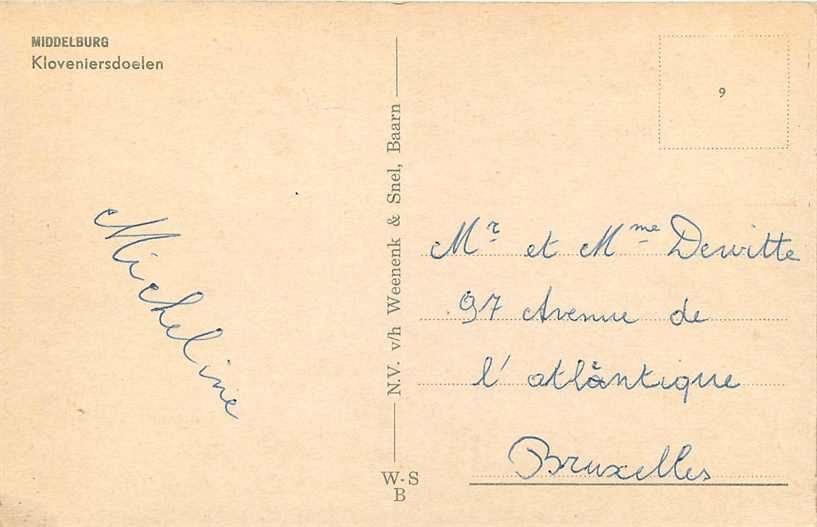 MIDDELBURG
Kloveniersdoelen
Micheline
N.V. v/h Weenenk & Snel, Baarn
W-S
B
9
Mr et Mme Dewitte
97 Avenue de
l'atlântique
Bruxelles